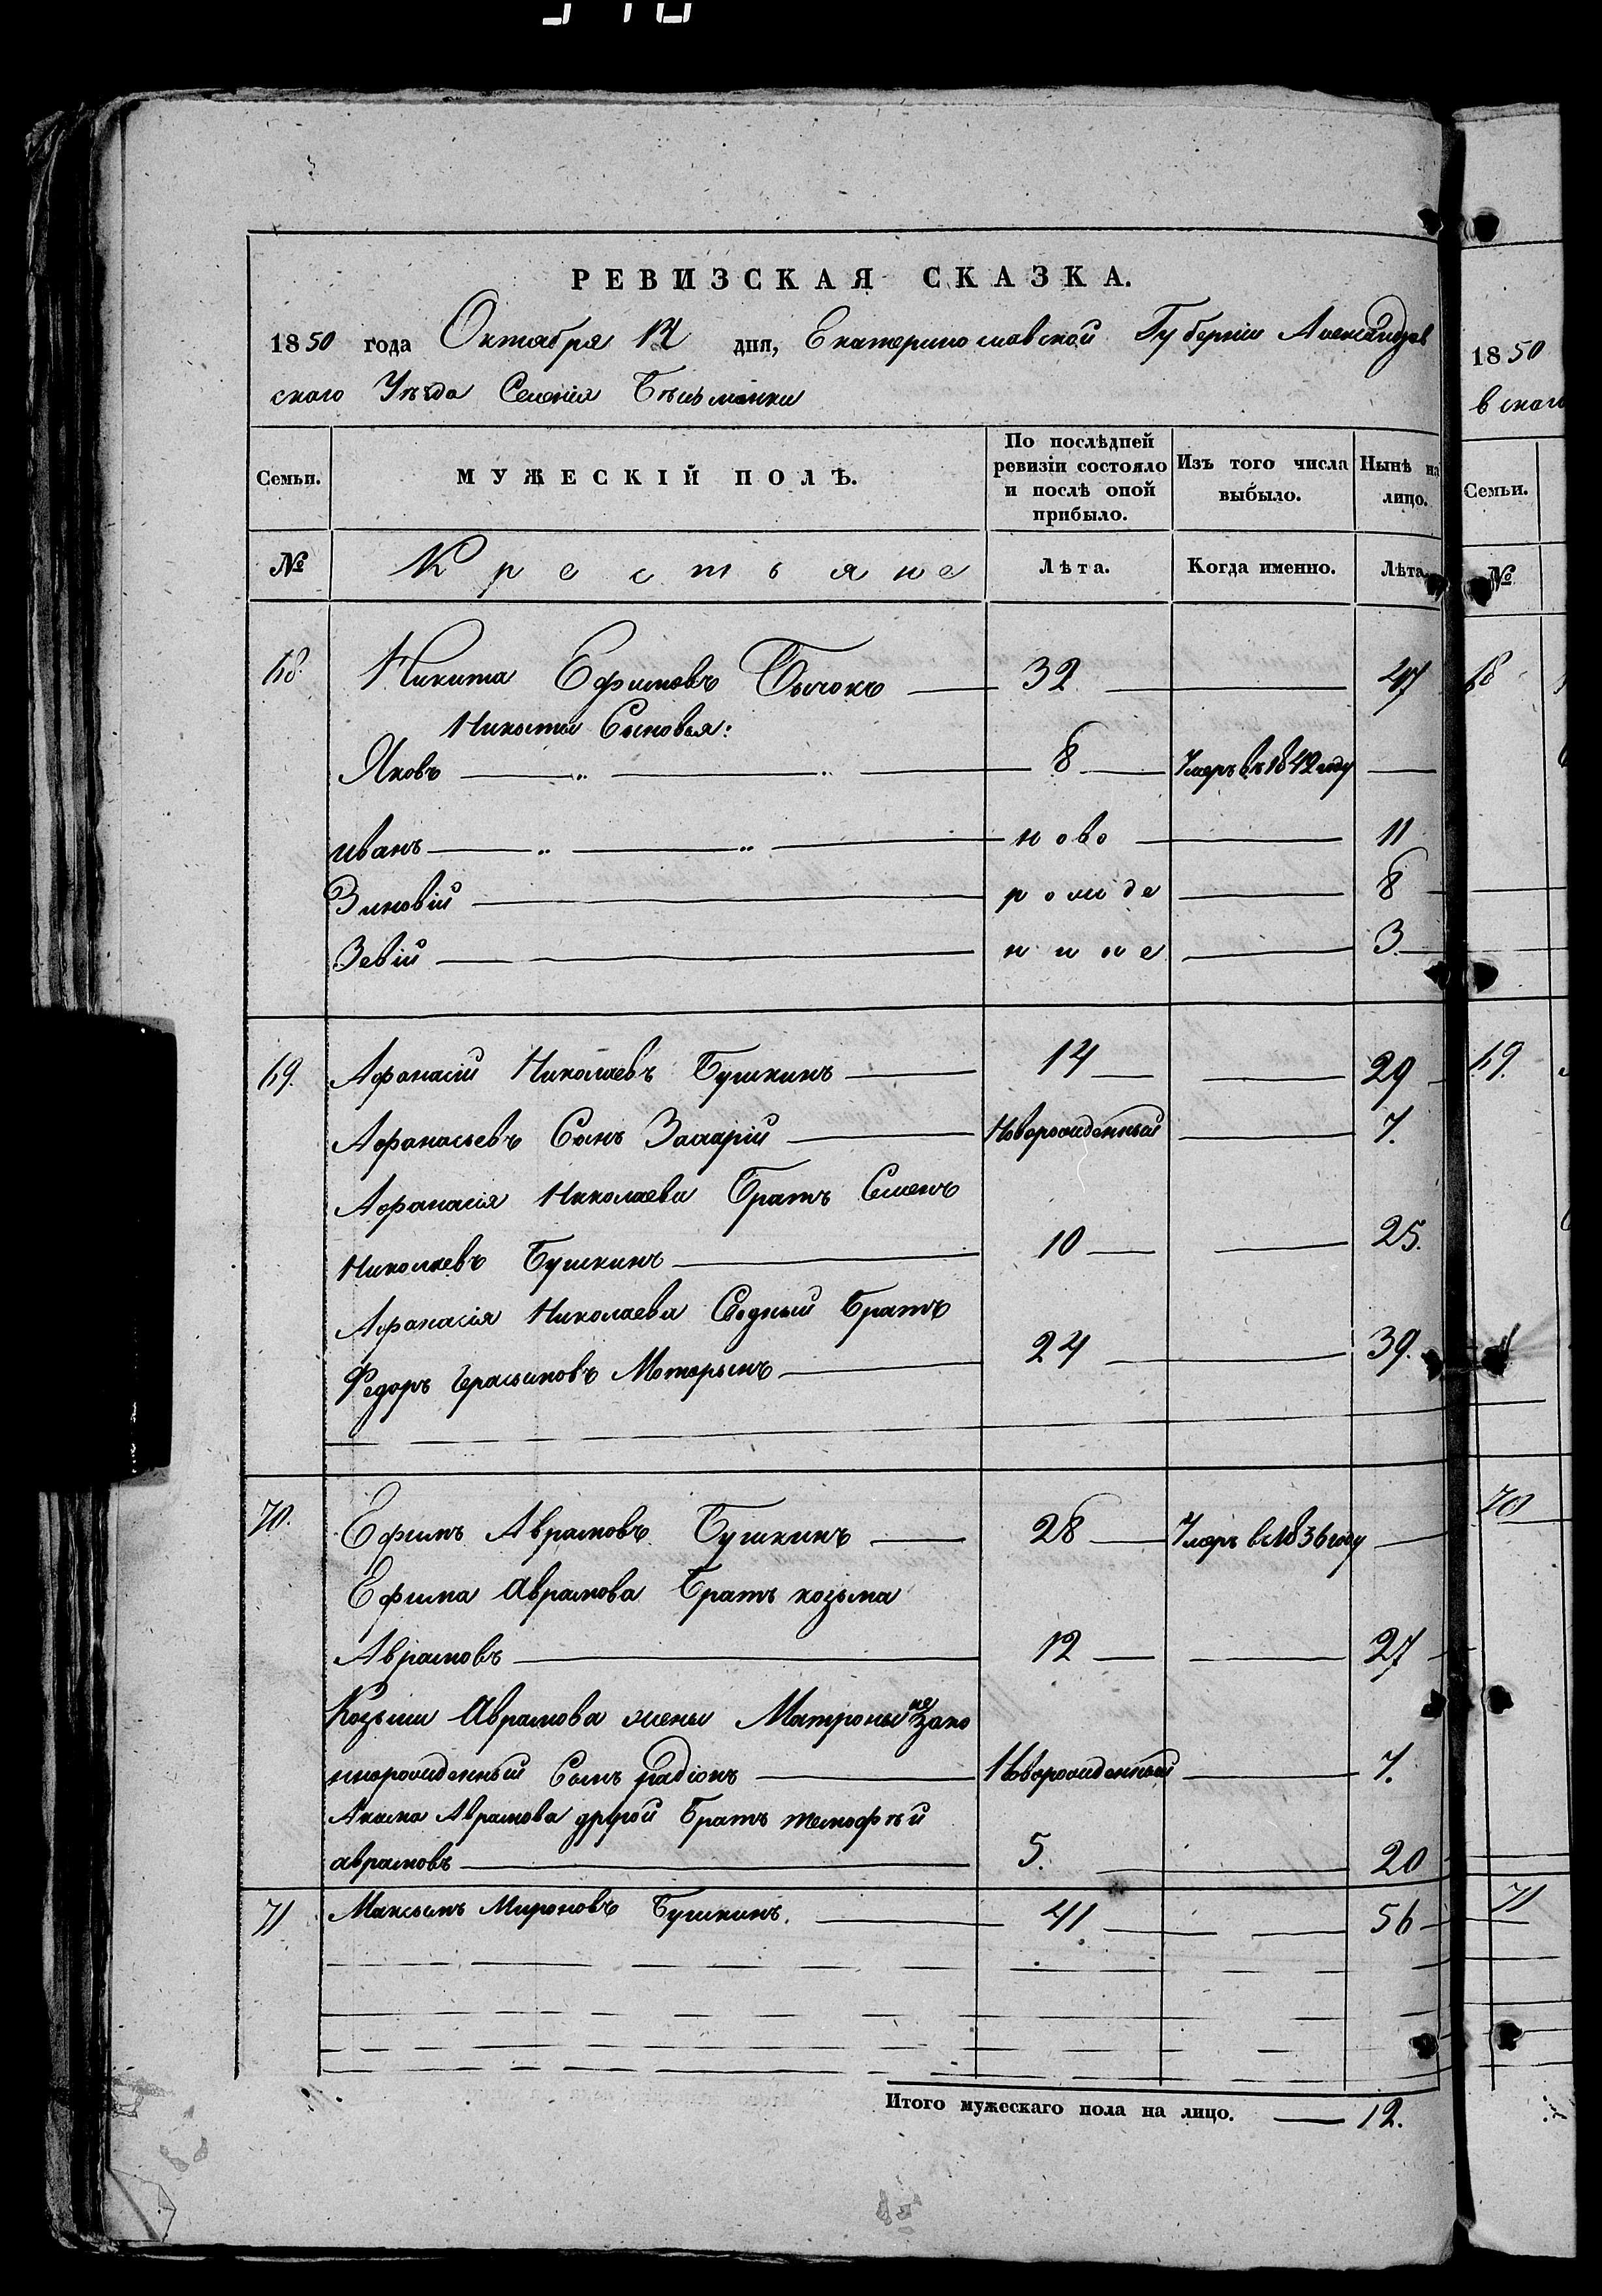 РЕВИЗСКАЯ СКАЗКА.
1850 года Октября дня, Екатеринославской Губерніи Александров
скаго Уѣзда Селенія Бѣльманки
Семьи. МУЖЕСКІЙ ПОЛЪ. По послѣдней ревизіи состояло и послѣ оной прибыло. Изъ того числа выбыло. Нынѣ на лицо.
№ Крестьяне Лѣта. Когда именно. Лѣта.
68. Никита Ефимовъ Бычокъ 32 47
Никиты Сыновья:
Яковъ 8 Умеръ въ 1842 году
иванъ ново 11
Зиновій рожде 8
Зевій нные 3.
69. Афанасій Николаевъ Бушкинъ 14 29
Афанасьевъ Сынъ Захарій Новорожденный 7.
Афанасія Николаева Братъ Семенъ
Николаевъ Бушкинъ 10 25.
Афанасія Николаева Сводный Братъ
Федоръ Герасимовъ 24 39.
70. Ефимъ Аврамовъ Бушкинъ 28 Умеръ въ 1836 году
Ефима Аврамова Братъ козьма
Аврамовъ 12 27
Козьмы Аврамова жены Матроны незако
ннорожденный Сынъ радіонъ Новорожденный 7.
Аврамова другой Братъ тимофѣй
аврамовъ 5. 20
71 Максимъ Мироновъ Бушкинъ. 41 56
Итого мужескаго пола на лицо. 12.
1850
вскаго
Семьи.
№
68
69.
70
71